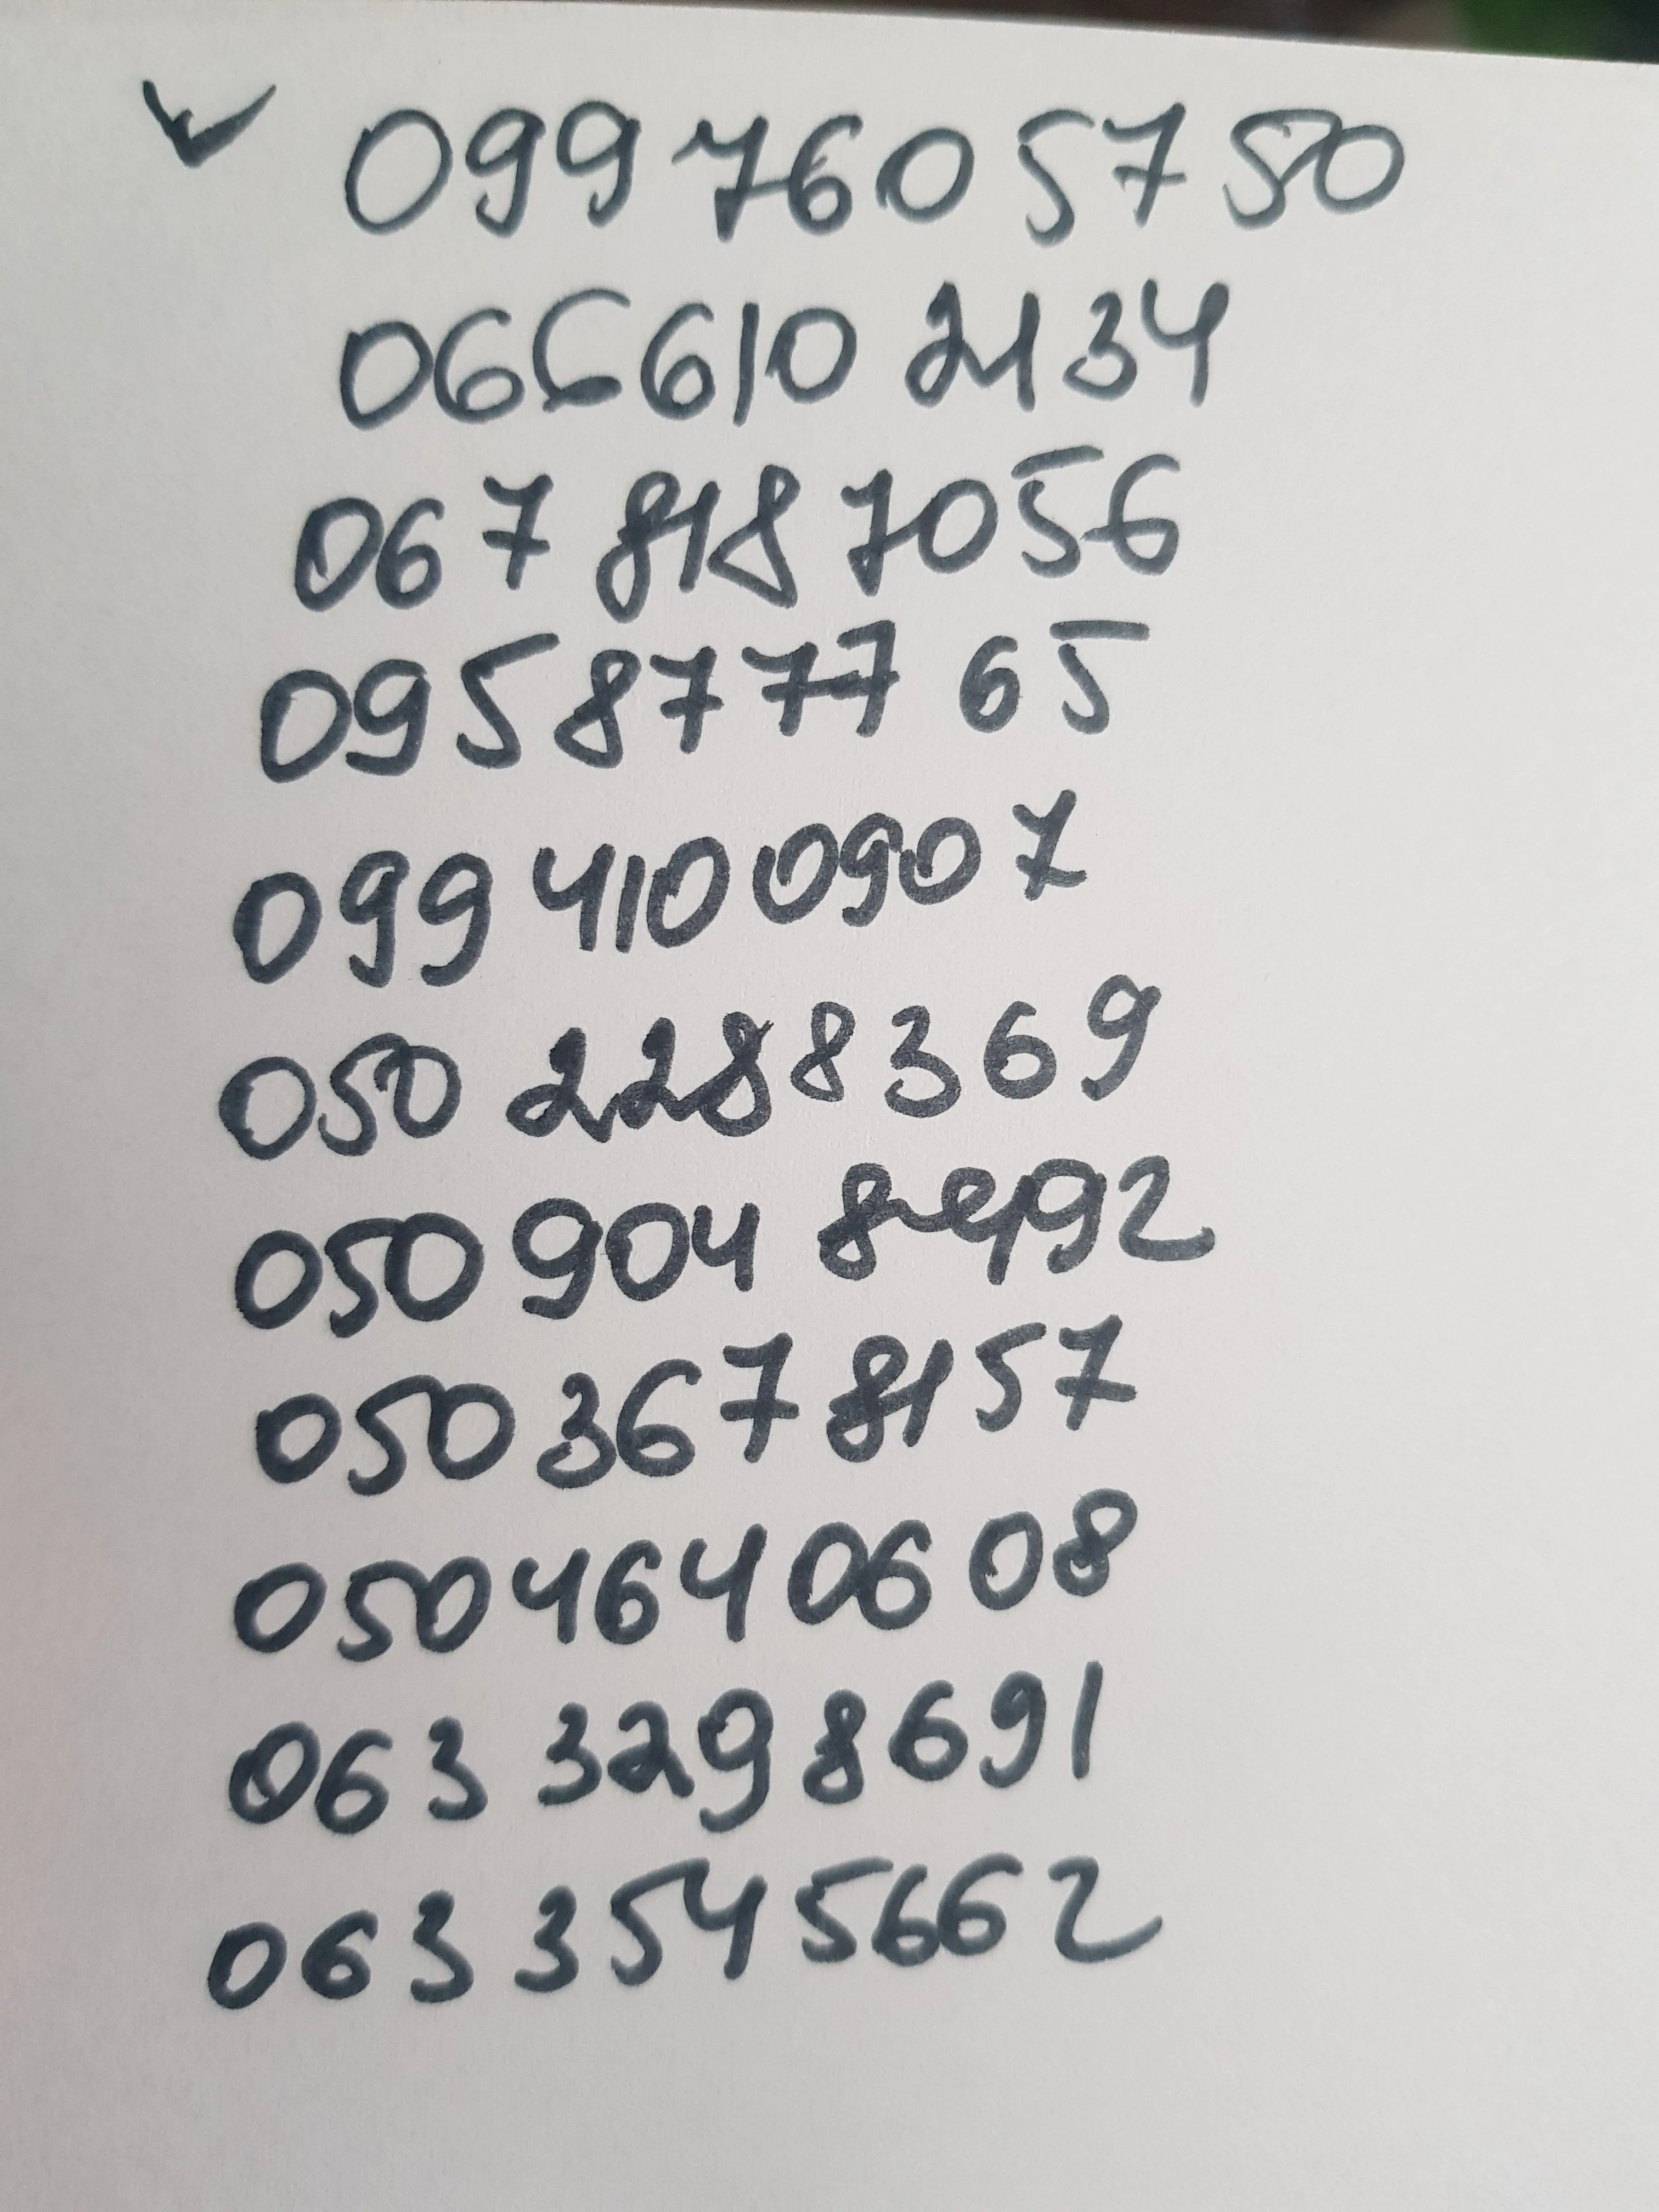 099 760 57 50
066 610 2134
067 818 7056
095 877 77 65
099 410 0907
050 2288369
050 904 8492
050 367 8157
050 464 0608
063 3298691
063 3545662